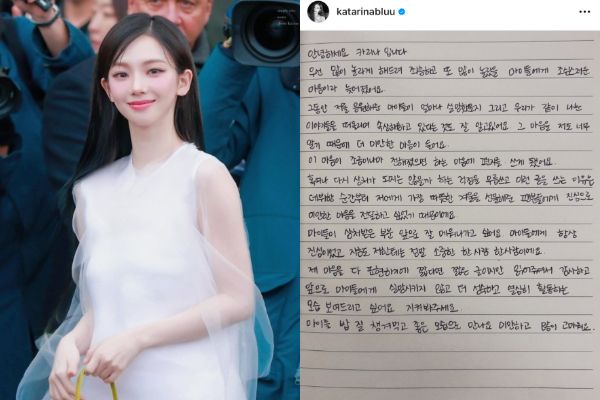 katarinabluu
안녕하세요 카리나 입니다
우선 많이 놀라게 해드려 죄송하고 또 많이 놀랐을 마이들에게 조심스러운
마음이라 늦어졌어요.
그동안 저를 응원해준 마이들이 얼마나 실망했을지 그리고 우리가 같이 나눈
이야기들을 떠올리며 속상해하고 있다는 것도 잘 알고있어요. 그 마음을 저도 너무
알기 때문에 더 미안한 마음이 들어요.
이 마음이 조금이나마 전해졌으면 하는 마음에 편지를 쓰게 됐어요.
혹여나 다시 상처가 되지는 않을까 하는 걱정을 무릅쓰고 이런 글을 쓰는 이유은
데뷔한 순간부터 저에게 가장 따뜻한 겨울을 선물해준 팬분들에게 진심으로
미안한 마음을 전하고 싶었기 때문이에요
마이들이 상처받은 부분 앞으로 잘 메워나가고 싶어요 마이들에게 항상
진심이었고 지금도 저한테는 정말 소중한 한사람 한사람이에요.
제 마음을 다 표현하기에 짧다면 짧은 글이지만 와줘서 감사하고
앞으로 마이들에게 실망시키지 않고 더 성숙하고 열심히 활동하는
모습 보여드리고 싶어요 지켜봐주세요.
마이들 밥 잘 챙겨먹고 좋은 모습으로 만나요 미안하고 많이 고마워요.